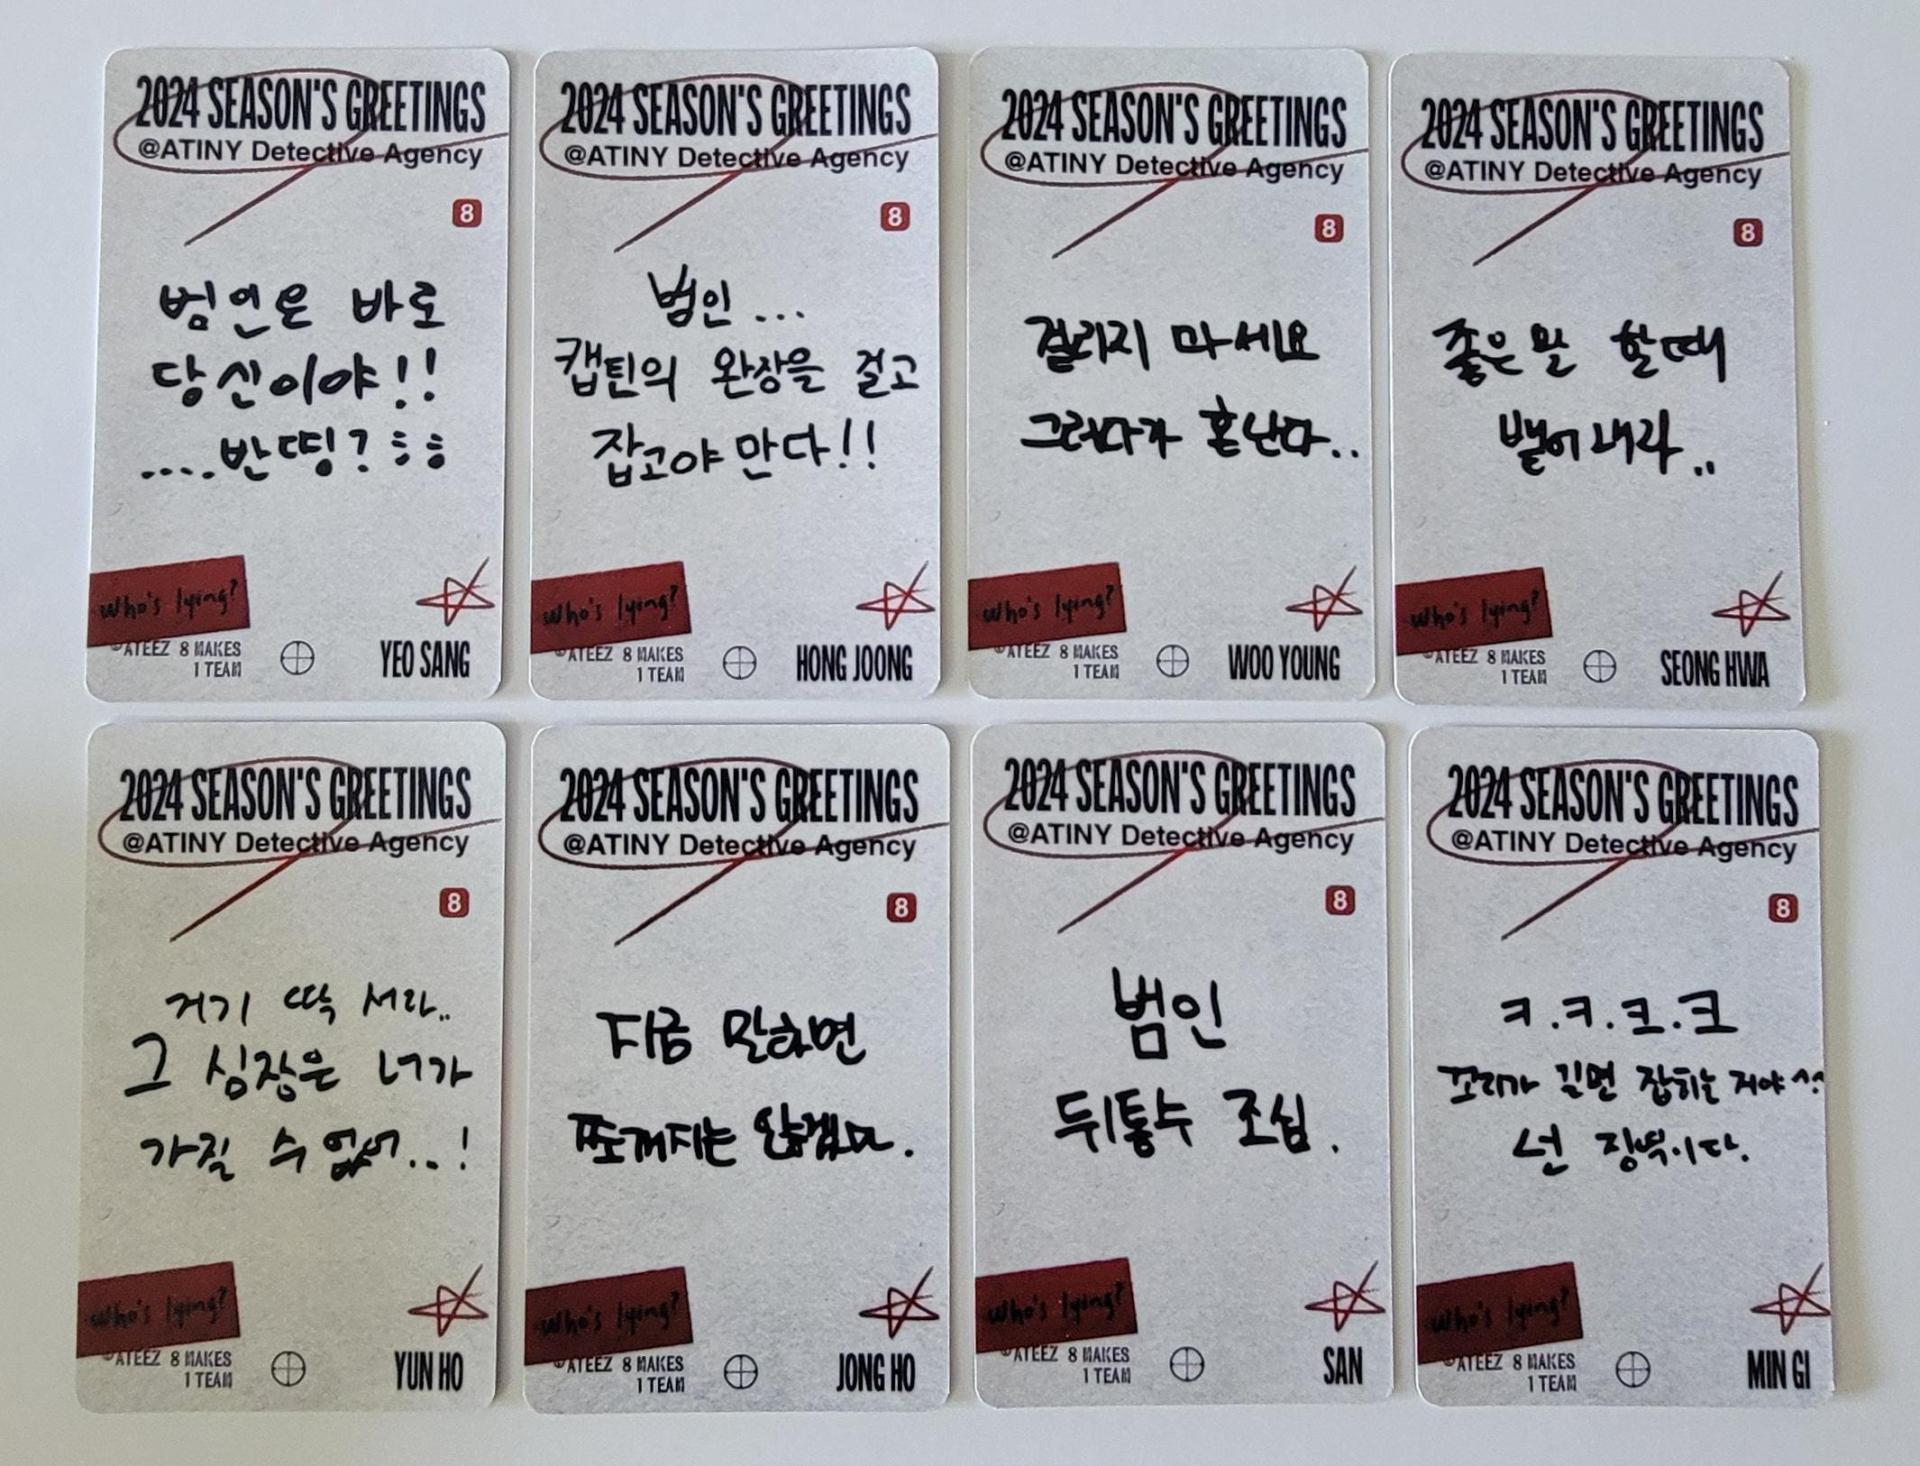 2024 SEASON'S GREETINGS
@ATINY Detective Agency
8
범인은 바로
당신이야!!
....반띵?
who's lying?
©ATEEZ 8 MAKES
1 TEAM
YEO SANG
2024 SEASON'S GREETINGS
@ATINY Detective Agency
8
범인...
캡틴의 완장을 걸고
잡고야 만다!!
who's lying?
©ATEEZ 8 MAKES
1 TEAM
HONG JOONG
2024 SEASON'S GREETINGS
@ATINY Detective Agency
8
걸리지 마세요
그러다가 혼난다..
who's lying?
©ATEEZ 8 MAKES
1 TEAM
WOO YOUNG
2024 SEASON'S GREETINGS
@ATINY Detective Agency
8
좋은 말 할때
뱉어내라..
who's lying?
©ATEEZ 8 MAKES
1 TEAM
SEONG HWA
2024 SEASON'S GREETINGS
@ATINY Detective Agency
8
거기 딱 서라..
그 심장은 너가
가질 수 없어...!
who's lying?
©ATEEZ 8 MAKES
1 TEAM
YUN HO
2024 SEASON'S GREETINGS
@ATINY Detective Agency
8
지금 말하면
쪼개지는 않겠다.
who's lying?
©ATEEZ 8 MAKES
1 TEAM
JONG HO
2024 SEASON'S GREETINGS
@ATINY Detective Agency
8
범인
뒤통수 조심.
who's lying?
©ATEEZ 8 MAKES
1 TEAM
SAN
2024 SEASON'S GREETINGS
@ATINY Detective Agency
8
ㅋ.ㅋ.ㅋ.ㅋ
꼬리가 길면 잡히는 거야^^
넌 징역이다.
who's lying?
©ATEEZ 8 MAKES
1 TEAM
MIN GI